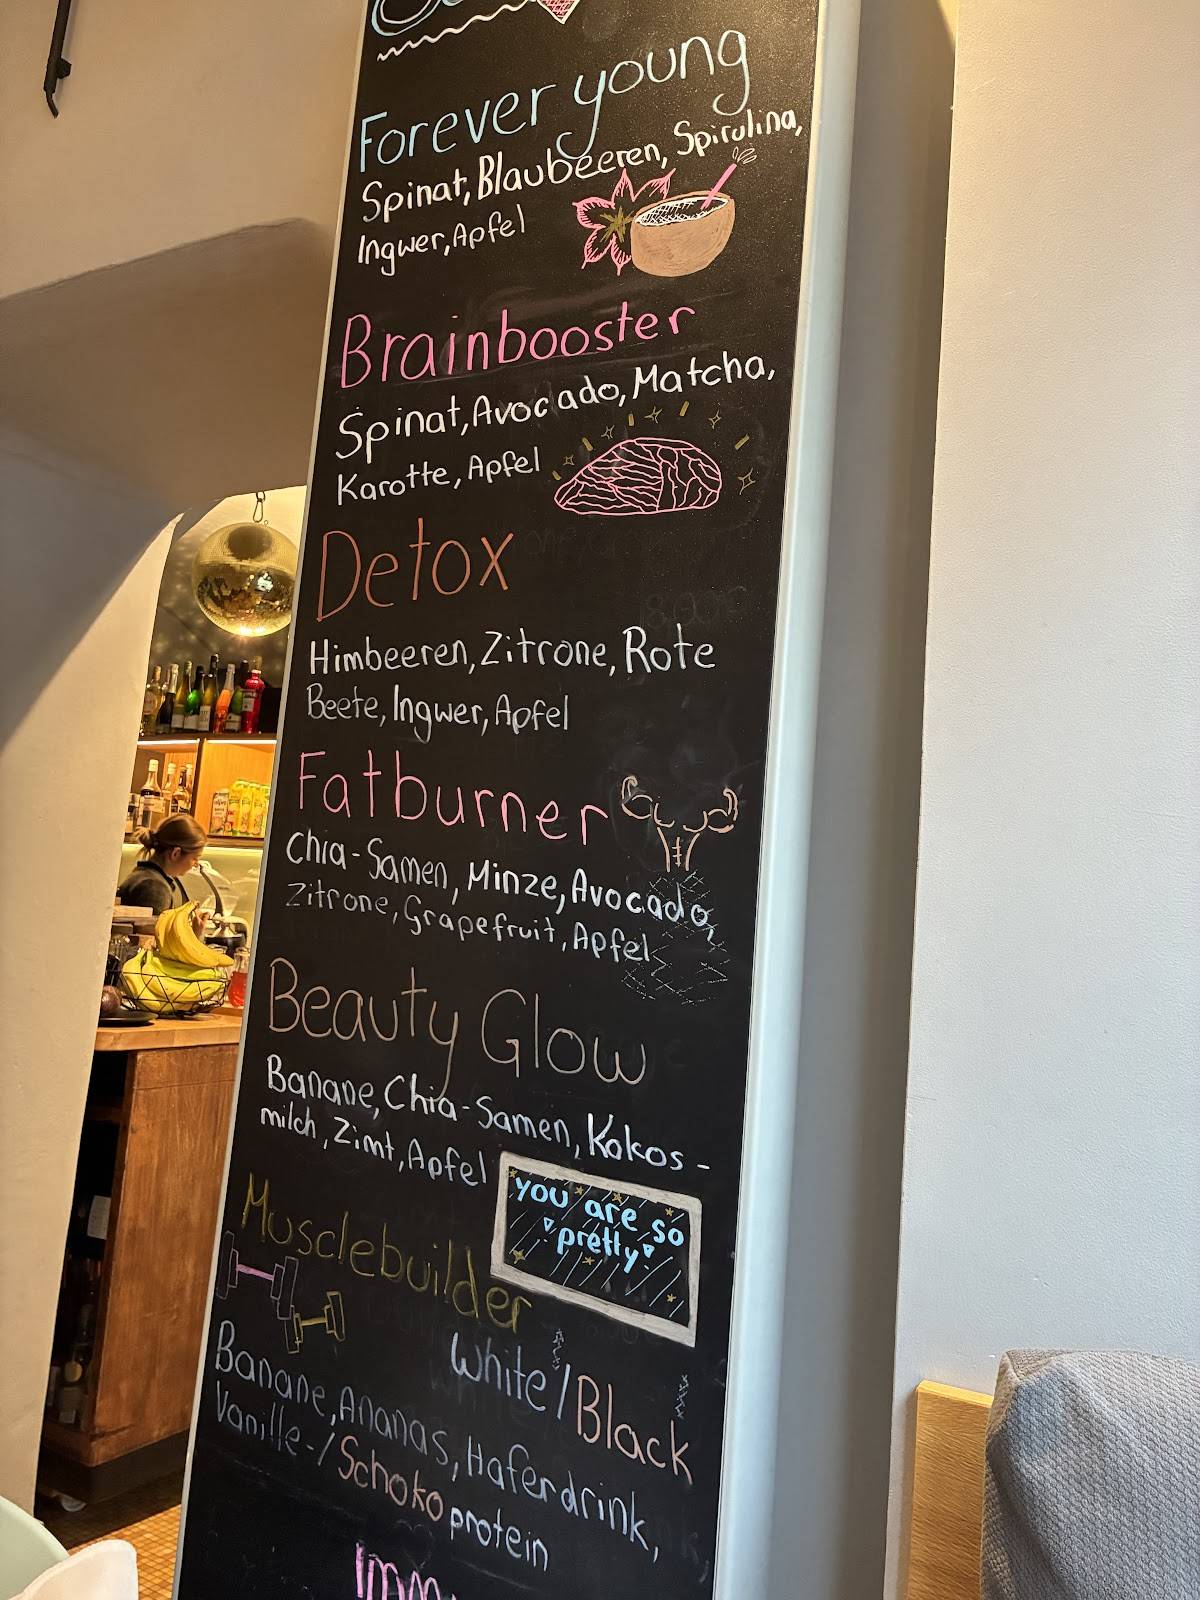 Forever young
Spinat, Blaubeeren, Spirulina,
Ingwer, Apfel
Brainbooster
Spinat, Avocado, Matcha,
Karotte, Apfel
Detox
Himbeeren, Zitrone, Rote
Beete, Ingwer, Apfel
Fatburner
Chia-Samen, Minze, Avocado,
Zitrone, Grapefruit, Apfel
Beauty Glow
Banane, Chia-Samen, Kokos-
milch, Zimt, Apfel
you are so
pretty
Musclebuilder
White/Black
Banane, Ananas, Haferdrink,
Vanille-/Schokoprotein